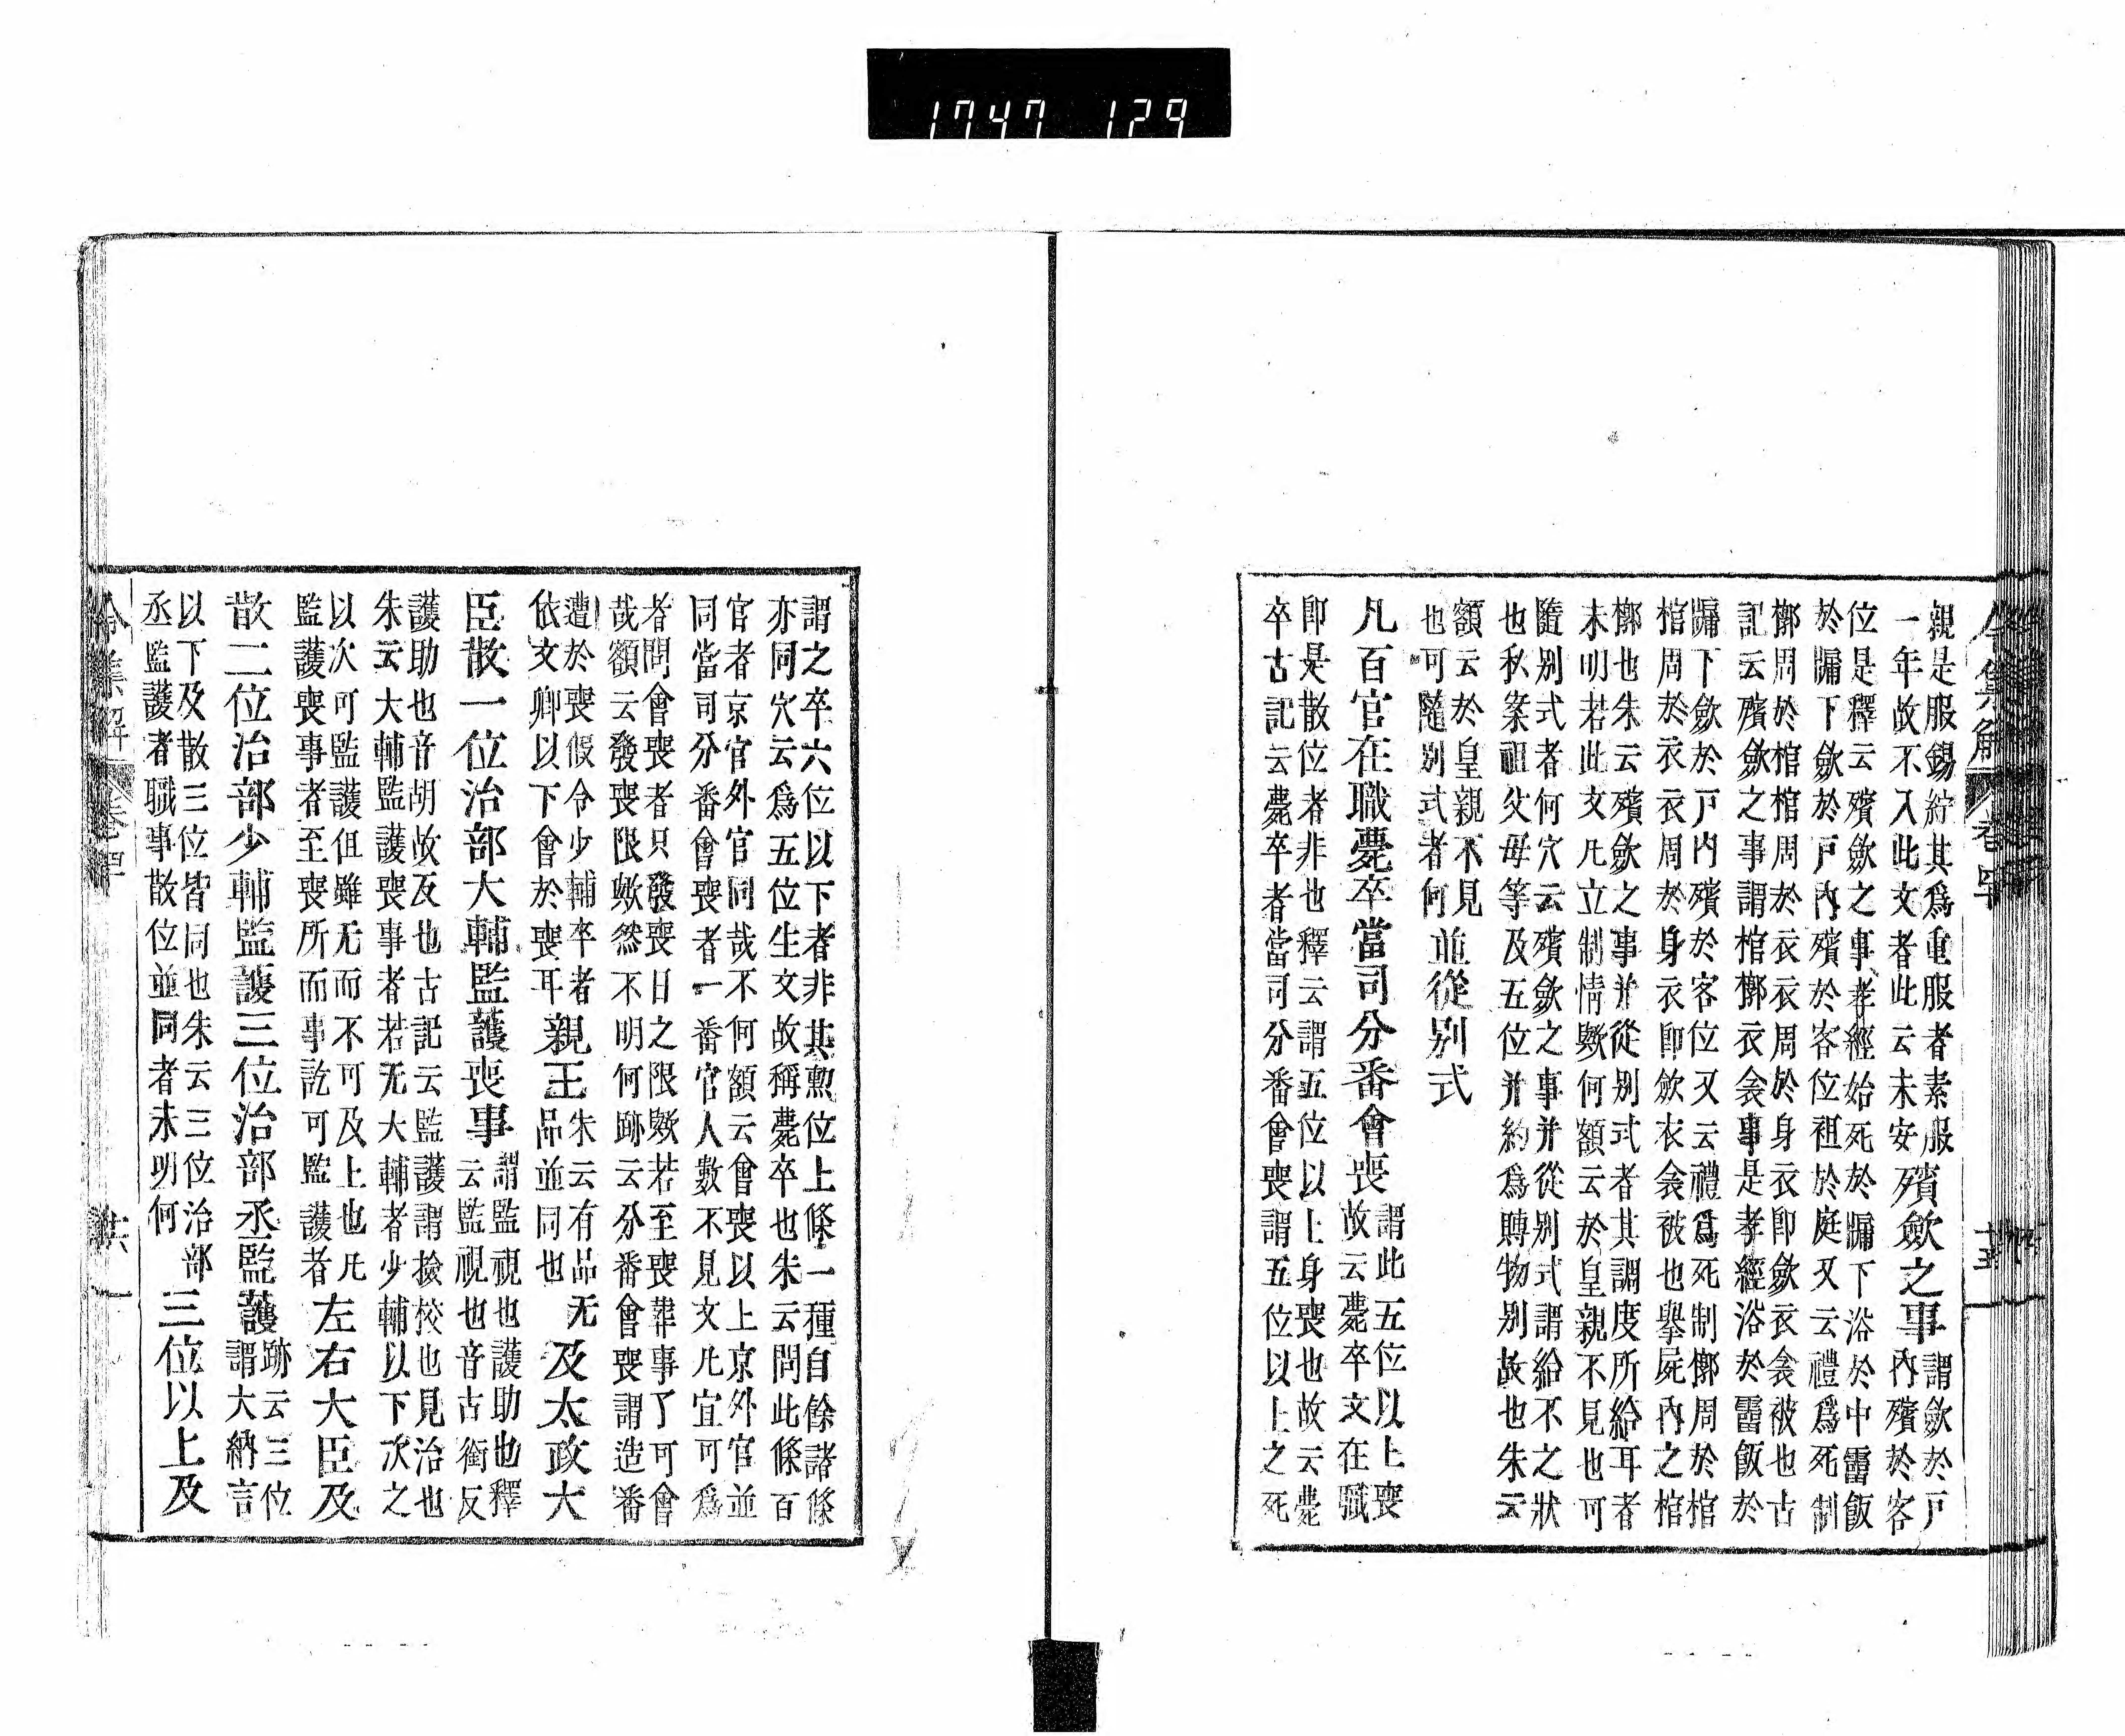 1747 129
親是服錫紵其爲重服者素服
一年故不入此文者此云未安
殯斂之事
謂斂於戸
内殯於客
位是釋云殯斂之事孝經始死於牖下浴於中霤飯
於牖下斂於戸内殯於客位祖於庭又云禮爲死制
槨周於棺棺周於衣衣周於身衣即斂衣衾被也古
記云殯斂之事謂棺槨衣衾事是孝經浴於霤飯於
牖下斂於戸内殯於客位又云禮爲死制槨周於棺
棺周於衣衣周於身衣即斂衣衾被也擧屍内之棺
槨也朱云殯斂之事并從别式者其調度所給耳者
未明若此文凡立制情歟何額云於皇親不見也可
隨别式者何穴云殯斂之事并從别式謂給不之狀
也私案祖父母等及五位并約爲賻物别故也朱云
額云於皇親不見
也可隨别式者何
並從别式
凡百官在職薨卒當司分番會喪
謂此五位以上喪
故云薨卒文在職
即是散位者非也釋云謂五位以上身喪也故云薨
卒古記云薨卒者當司分番會喪謂五位以上之死
集解 卷四十 十五
謂之卒六位以下者非其勲位上條一種自餘諸條
亦同穴云爲五位生文故稱薨卒也朱云問此條百
官者京官外官同哉不何額云會喪以上京外官並
同當司分番會喪者一番官人數不見文凡宜可爲
者問會喪者只發喪日之限歟若至喪葬事了可會
哉額云發喪限歟然不明何跡云分番會喪謂造番
遭於喪假令少輔卒者
依文卿以下會於喪耳
親王
朱云有品无
品並同也
及太政大
臣散一位治部大輔監護喪事
謂監視也護助也釋
云監視也音古衛反
護助也音胡故反也古記云監護謂撿校也見治也
朱云大輔監護喪事者若无大輔者少輔以下次之
以次可監護但雖无而不可及上也凡
監護喪事者至喪所而事訖可監護者
左右大臣及
散二位治部少輔監護三位治部丞監護
跡云三位
謂大納言
以下及散三位皆同也朱云三位治部
丞監護者職事散位並同者未明何
三位以上及
令集解 卷四十